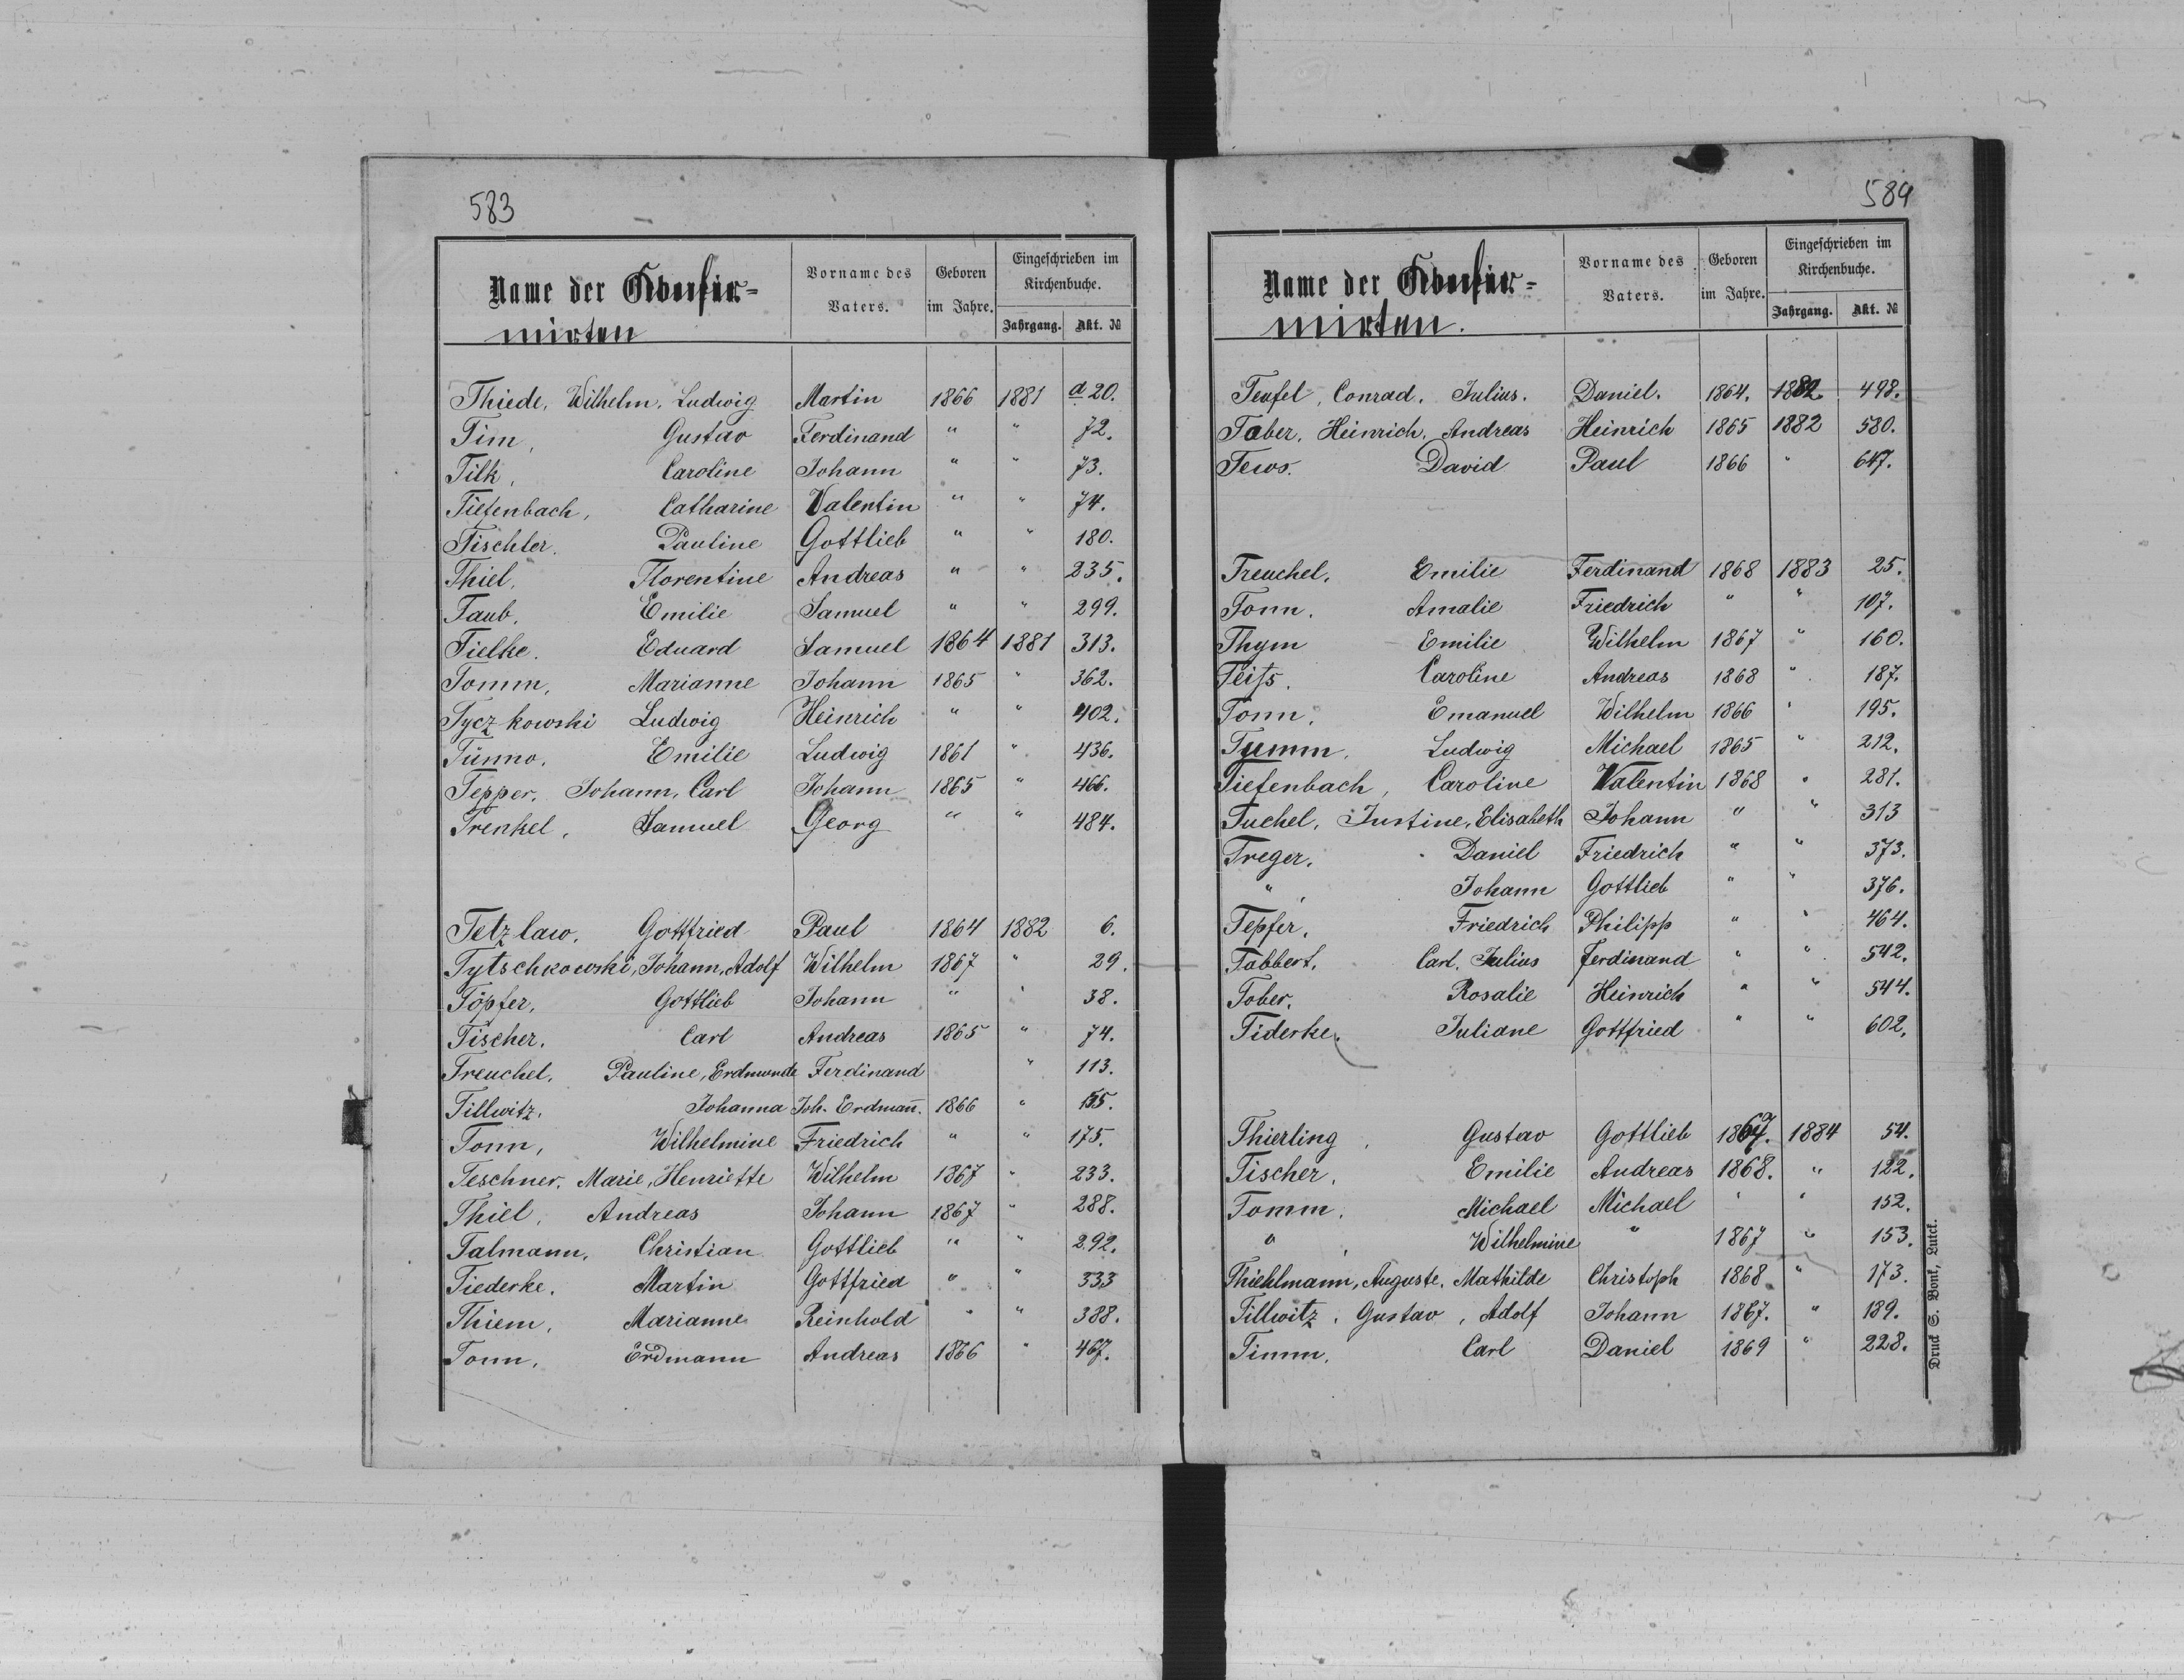 583
Name der Confir-
mirten
Vorname des Vaters.
Geboren im Jahre.
Eingeschrieben im Kirchenbuche.
Jahrgang. Akt. №
Thiede, Wilhelm, Ludwig Martin 1866 1881 a 20.
Tim, Gustav Ferdinand " " 72.
Tilk, Caroline Johann " " 73.
Tiefenbach, Catharine Valentin " " 74.
Tischler. Pauline Gottlieb " " 180.
Thiel, Florentine Andreas " " 235.
Taub, Emilie Samuel " " 299.
Tielke. Eduard Samuel 1864 1881 313.
Tomm, Marianne Johann 1865 " 362.
Tyczkowski Ludwig Heinrich " " 402.
Tünno, Emilie Ludwig 1861 " 436.
Tepper, Johann, Carl Johann 1865 " 466.
Trenkel, Samuel Georg " " 484.
Tetzlaw, Gottfried Paul 1864 1882 6.
Tytschkowski, Johann, Adolf Wilhelm 1867 " 29.
Töpfer, Gottlieb Johann " " 38.
Tischer, Carl Andreas 1865 " 74.
Treuchel, Pauline, Erdmunde Ferdinand " 113.
Tillwitz, Johanna Joh. Erdmañ. 1866 " 155.
Tonn, Wilhelmine Friedrich " " 175.
Teschner, Marie, Henriette Wilhelm 1867 " 233.
Thiel, Andreas Johann 1867 " 288.
Talmann, Christian Gottlieb " " 292.
Tiederke, Martin Gottfried " " 333
Thiem, Marianne Reinhold " " 388.
Tonn, Erdmann Andreas 1866 " 467.
584
Name der Confir-
mirten.
Vorname des Vaters.
Geboren im Jahre.
Eingeschrieben im Kirchenbuche.
Jahrgang. Akt. №
Teufel, Conrad, Julius. Daniel. 1864. 1882. 498.
Taber, Heinrich, Andreas Heinrich 1865 1882 580.
Tews. David Paul 1866 " 647.
Treuchel, Emilie Ferdinand 1868 1883 25.
Tonn. Amalie Friedrich " " 107.
Thym Emilie Wilhelm 1867 " 160.
Teiſs. Caroline Andreas 1868 " 187.
Tonn, Emanuel Wilhelm 1866 " 195.
Tumm, Ludwig Michael 1865 " 212.
Tiefenbach, Caroline Valentin 1868 " 281.
Tuchel, Justine, Elisabeth Johann " " 313
Treger, Daniel Friedrich " " 373.
" Johann Gottlieb " " 376.
Tepfer, Friedrich Philipp " " 464.
Tabbert, Carl, Julius Ferdinand " " 542.
Tober, Rosalie Heinrich " " 544.
Tiderke, Juliane Gottfried " " 602.
Thierling, Gustav Gottlieb 1867. 1884 54.
Tischer, Emilie Andreas 1868. " 122.
Tomm, Michael Michael " " 152.
" , Wilhelmine " 1867 " 153.
Thiehlmann, Auguste, Mathilde Christoph 1868 " 173.
Tillwitz, Gustav, Adolf Johann 1867. " 189.
Timm, Carl Daniel 1869 " 228.
Druck S. Bonk, Lutck.